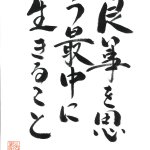 良い事を思
う最中に
生きること